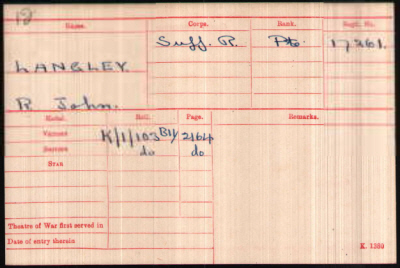 Name. Corps. Rank. Regtl. No.
LANGLEY. Suff. R. Pte. 17261.
R John.
Medal. Roll. Page. Remarks.
VICTORY K/1/103B14 2164
BRITISH do do
STAR
Theatre of War first served in
Date of entry therein
K. 1380